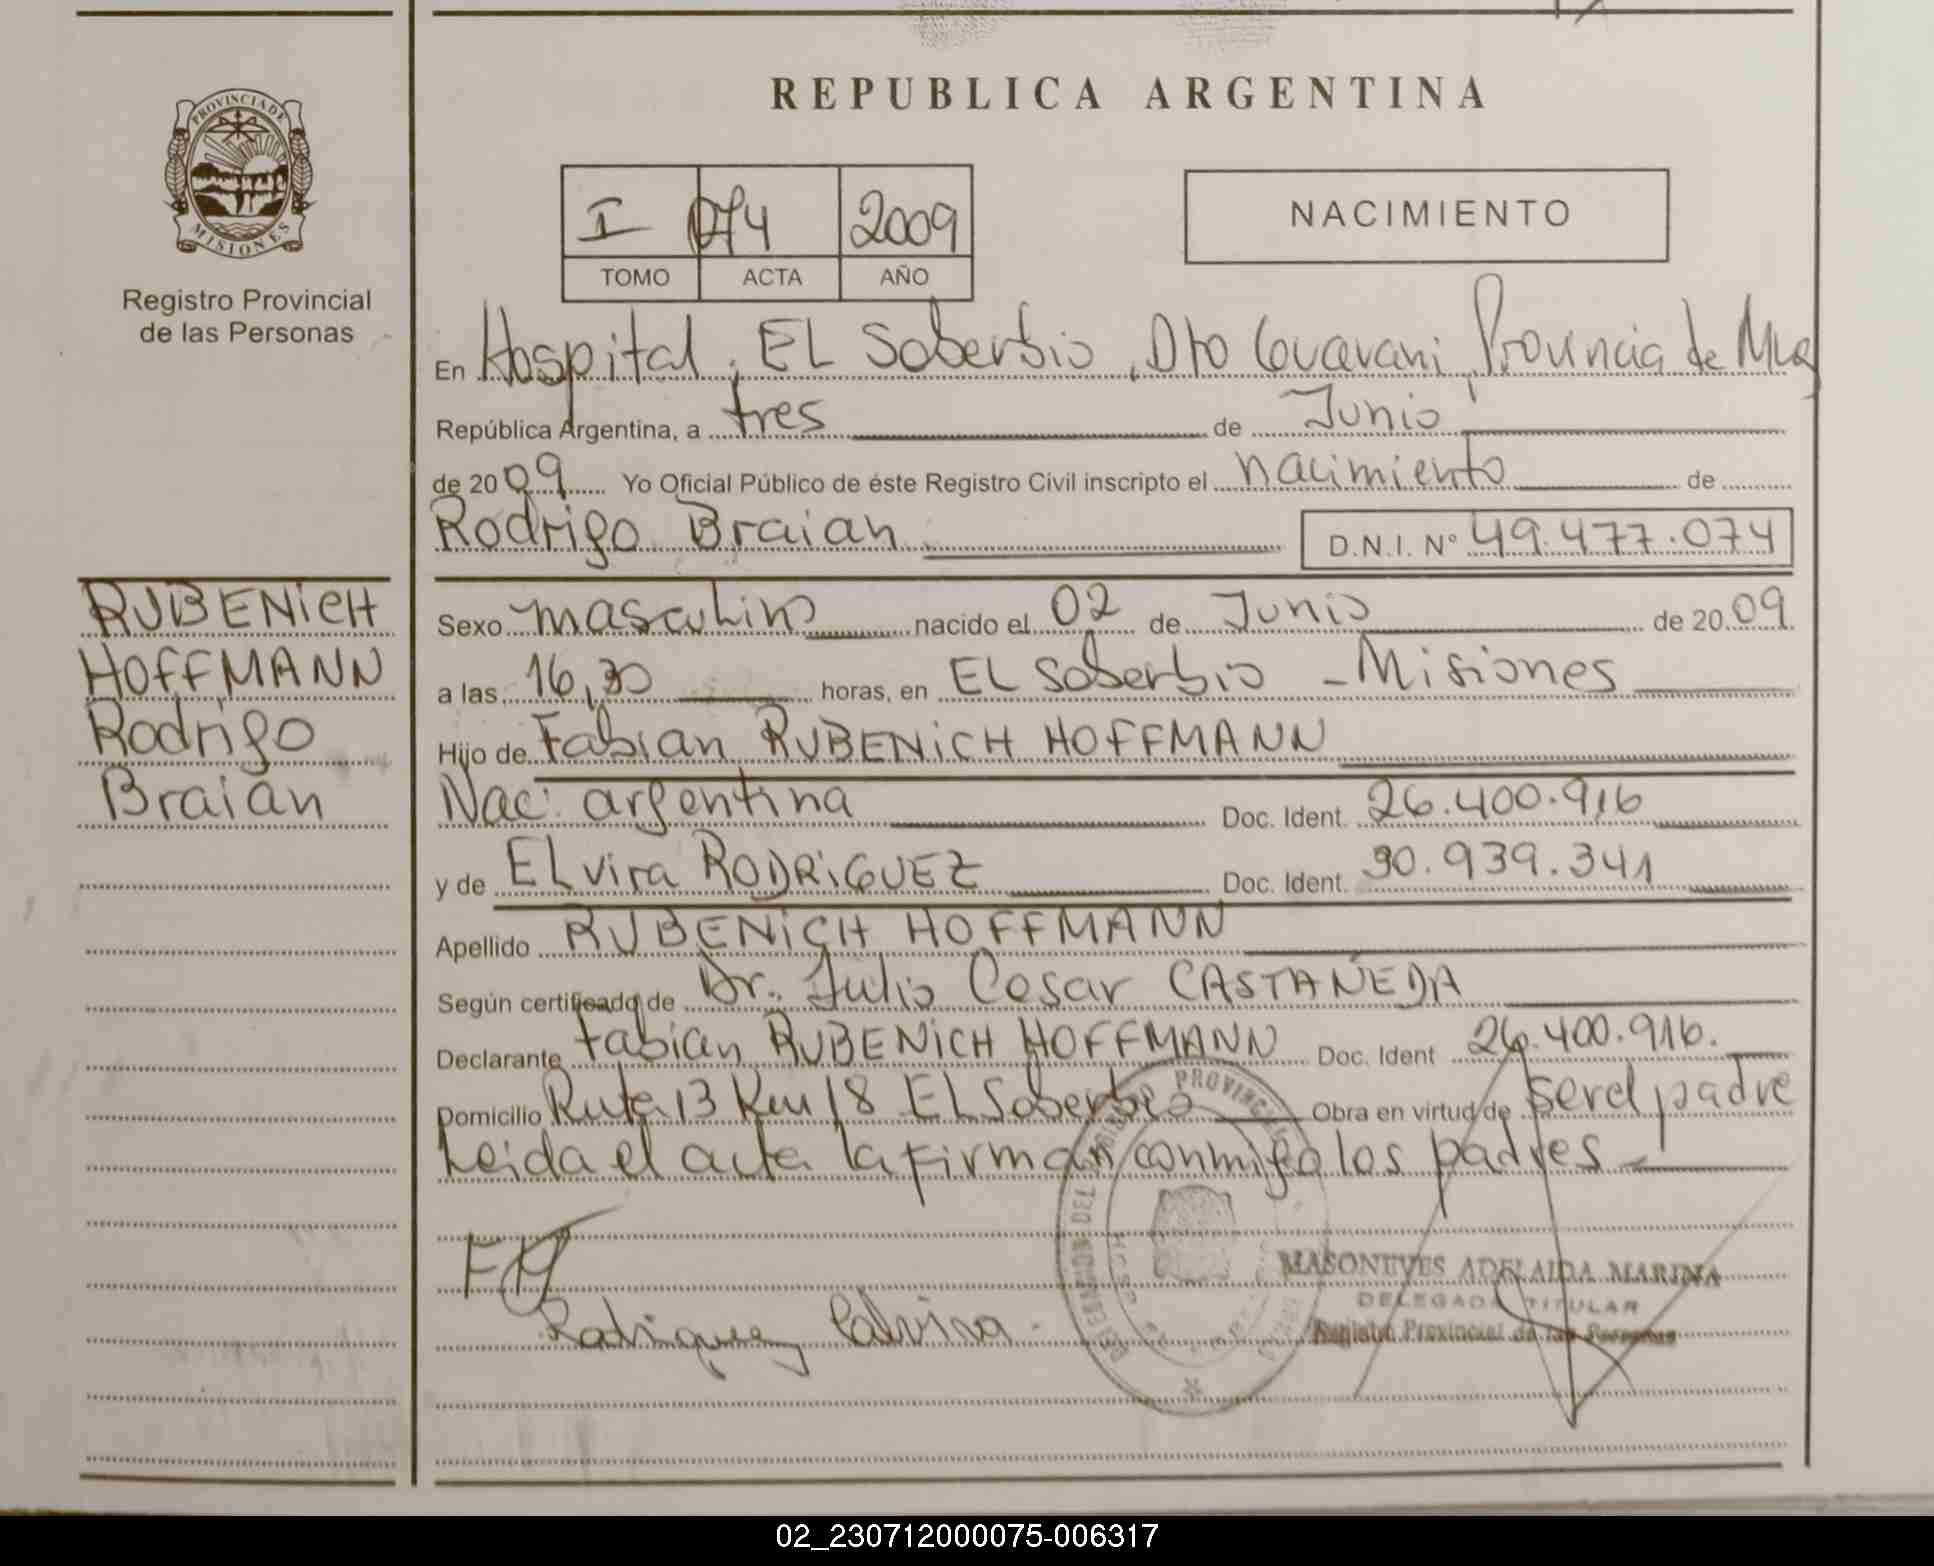 REPUBLICA ARGENTINA
PROVINCIA DE MISIONES
Registro Provincial
de las Personas
I 074 2009
TOMO ACTA AÑO
NACIMIENTO
En Hospital, EL Soberbio, Dto Guarani, Provincia de Mnes
República Argentina, a tres de Junio
de 2009 Yo Oficial Público de éste Registro Civil inscripto el nacimiento de
Rodrigo Braian D.N.I. Nº 49.477.074
RUBENiCH
HOFFMANN
Rodrigo
Braian
Sexo masculino nacido el 02 de Junio de 2009
a las 16,30 horas, en EL Soberbio - Misiones
Hijo de Fabian RUBENiCH HOFFMANN
Nac: argentina Doc. Ident. 26.400.916
y de ELvira RODRiGUEZ Doc. Ident. 30.939.341
Apellido RUBENiCH HOFFMANN
Según certificado de Dr. Julio Cesar CASTAÑEDA
Declarante Fabian RUBENiCH HOFFMANN Doc. Ident 26.400.916.
Domicilio Ruta 13 Km 18 EL Soberbio Obra en virtud de ser el padre
Leida el acta la firman conmigo los padres -
FH
Rodriguez
MASONEVES ADELAIDA MARINA
DELEGADA TITULAR
Registro Provincial de las Personas
02_230712000075-006317